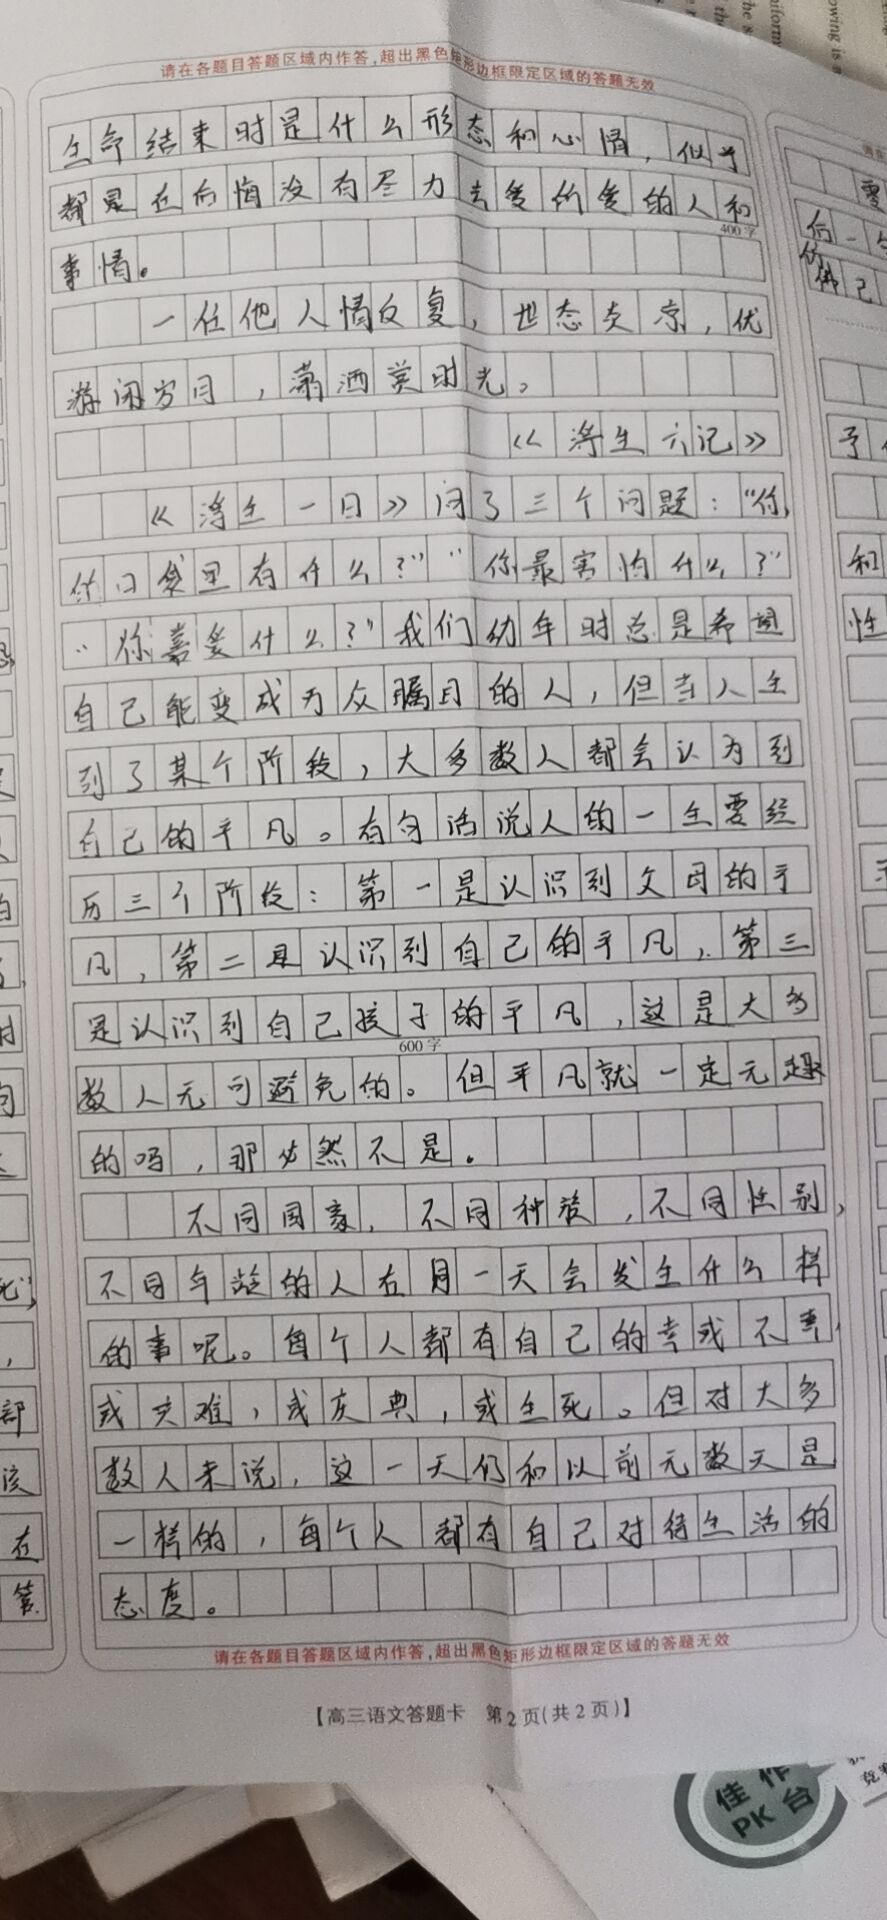 请在各题目答题区域内作答,超出黑色矩形边框限定区域的答题无效
生命结束时是什么形态和心情，似乎
都是在后悔没有尽力去爱所爱的人和
400字
事情。
一任他人情反复，世态炎凉，优
游闲岁月，潇洒赏时光。
《浮生六记》
《浮生一日》问了三个问题：“你
的口袋里有什么？”“你最害怕什么？”
“你喜爱什么？”我们幼年时总是希望
自己能变成万众瞩目的人，但当人生
到了某个阶段，大多数人都会认为到
自己的平凡。有句话说人的一生要经
历三个阶段：第一是认识到父母的平
凡，第二是认识到自己的平凡，第三
是认识到自己孩子的平凡，这是大多
600字
数人无可避免的。但平凡就一定无趣
的吗，那必然不是。
不同国家，不同种族，不同性别，
不同年龄的人在同一天会发生什么样
的事呢。每个人都有自己的幸或不幸，
或灾难，或庆典，或生死。但对大多
数人来说，这一天仍和以前无数天是
一样的，每个人都有自己对待生活的
态度。
请在各题目答题区域内作答,超出黑色矩形边框限定区域的答题无效
【高三语文答题卡 第2页(共2页)】
佳作
PK台